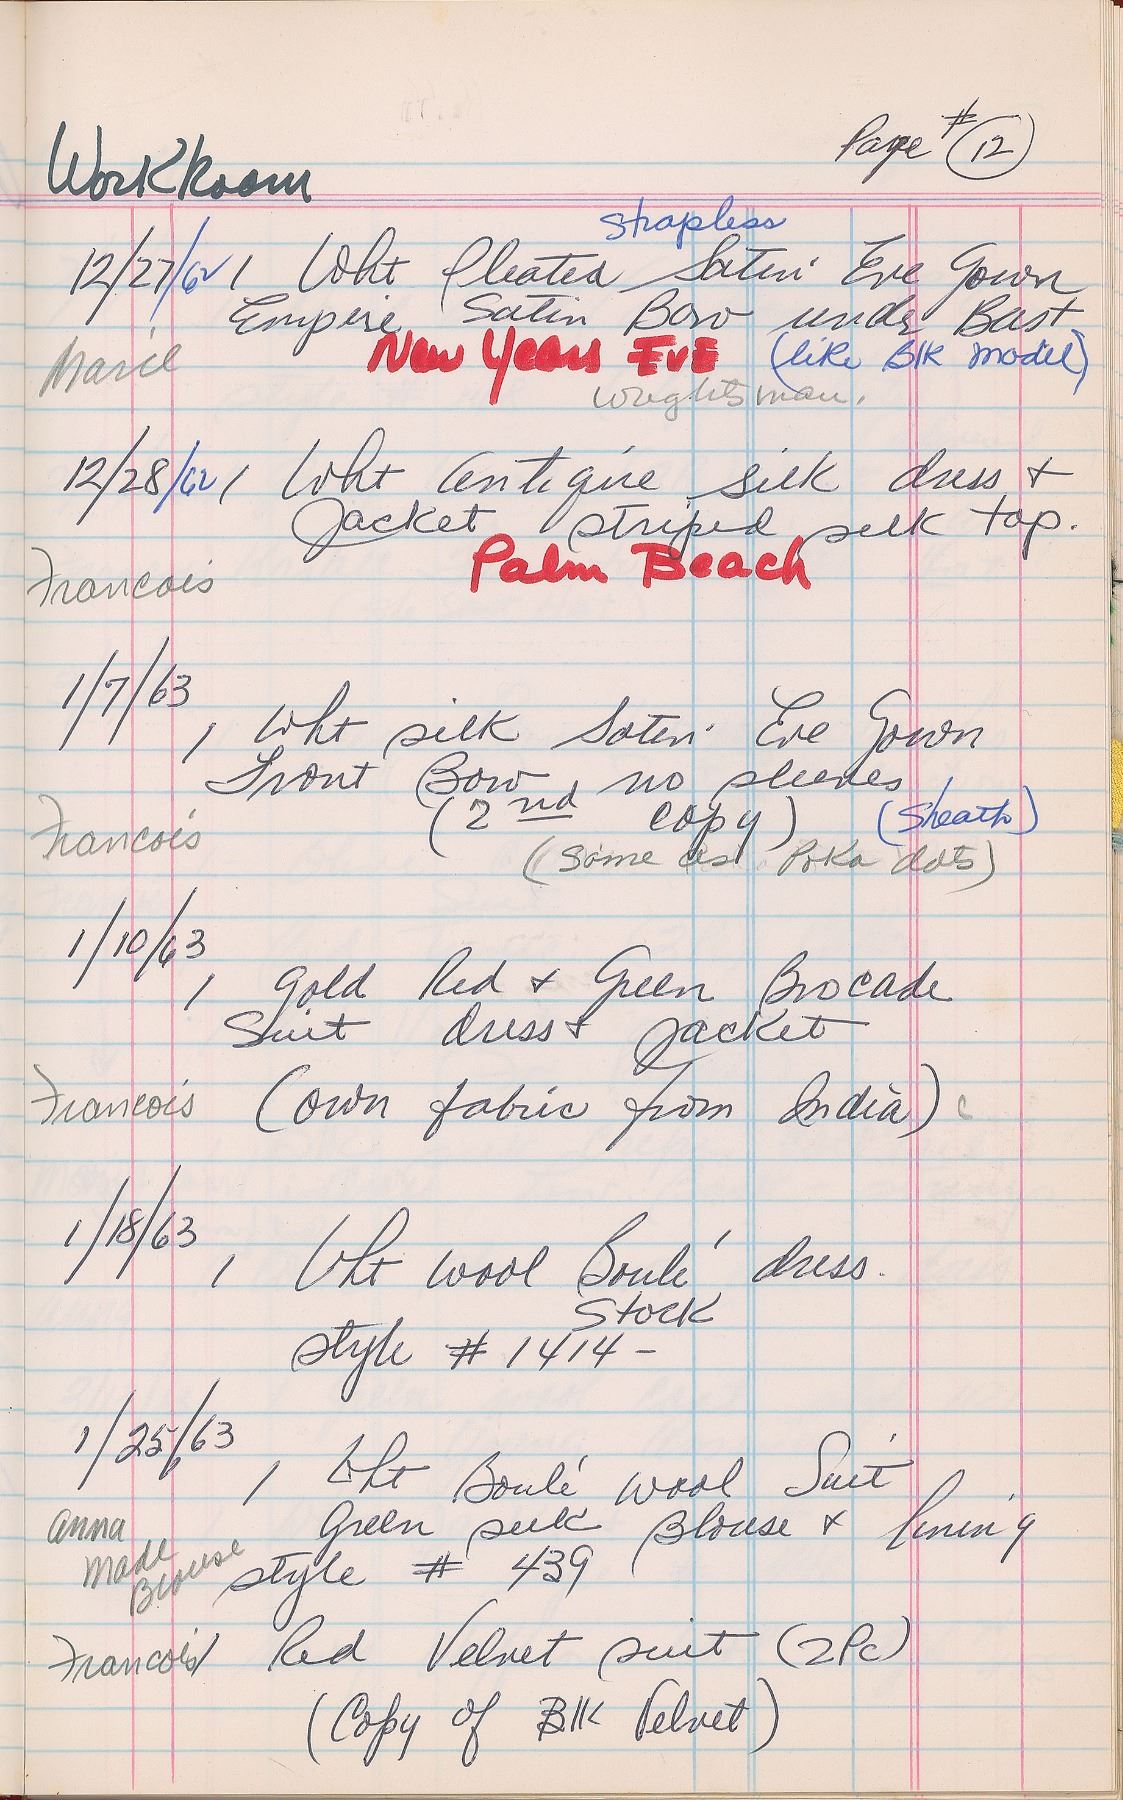 Page # 12
WorkRoom
strapless
12/27/62 1 Wht Pleated Satin Eve Gown
Empire Satin Bow under Bast
New Years EVE (like Blk model)
Marie
Wrightsman.
12/28/62 1 Wht Antique silk dress +
Jacket striped silk top.
Palm Beach
Francois
1/7/63
1 Wht silk Satin Eve Gown
Front Bow no sleeves
(2nd copy) (Sheath)
Francois
(Same as Poka dots)
1/10/63
1 Gold Red + Green Brocade
Suit dress + Jacket
Francois (own fabric from India)
1/18/63
1 Wht wool Boulé dress.
Stock
style # 1414 -
1/25/63
1 Wht Boulé wool Suit
Anna Green silk Blouse & lining
Made
Blouse style # 439
Francois 1 Red Velvet suit (2Pc)
(Copy of Blk Velvet)